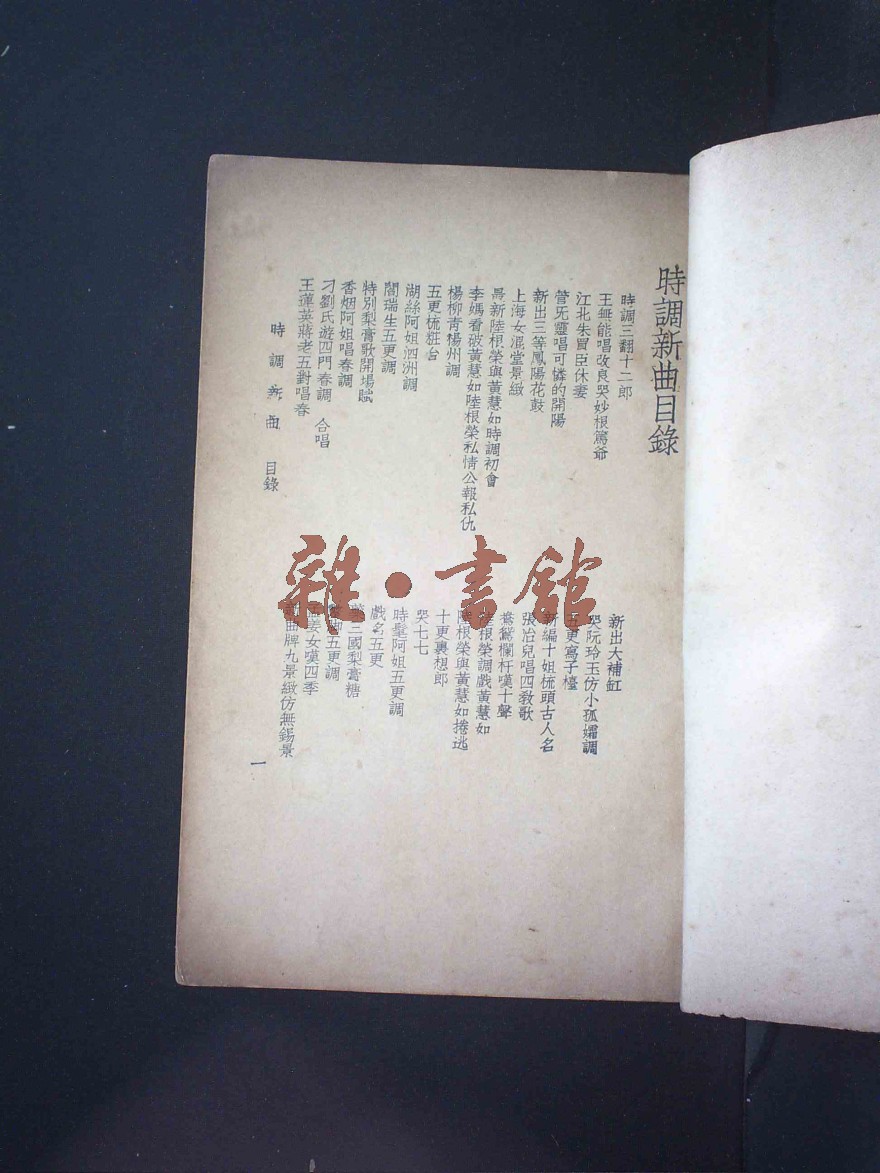 時調新曲目錄
時調三翻十二郎
王無能唱改良哭妙根篤爺
江北朱冒臣休妻
管旡靈唱可憐的開陽
新出三等鳳陽花鼓
上海女混堂景緻
最新陸根榮與黃慧如時調初會
李媽看破黃慧如陸根榮私情公報私仇
楊柳青楊州調
五更梳粧台
湖絲阿姐泗洲調
閻瑞生五更調
特別梨膏歌開場賦
香烟阿姐唱春調
刁劉氏遊四門春調 合唱
王蓮英蔣老五對唱春
新出大補缸
哭阮玲玉仿小孤孀調
五更寫子檯
新編十姐梳頭古人名
張冶兒唱四教歌
鴦鴦欄杆嘆十聲
陸根榮調戲黃慧如
陸根榮與黃慧如捲逃
十更裏想郎
哭七七
時髦阿姐五更調
戲名五更
三國梨膏糖
五更調
孟姜女嘆四季
新曲牌九景緻仿無錫景
時調新曲 目錄
一
雜·書館